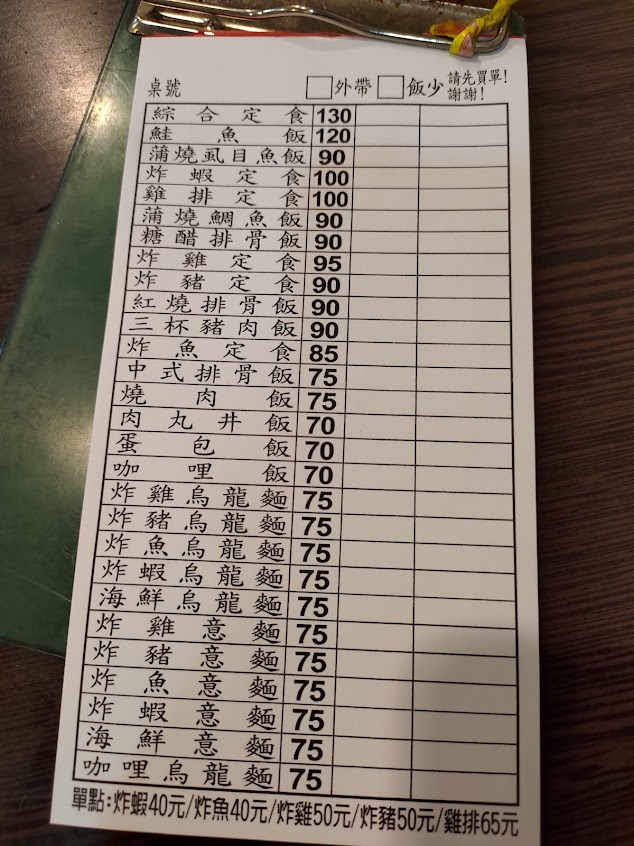 桌號 □外帶 □飯少 請先買單! 謝謝!
綜合定食 130
鮭魚飯 120
蒲燒虱目魚飯 90
炸蝦定食 100
雞排定食 100
蒲燒鯛魚飯 90
糖醋排骨飯 90
炸雞定食 95
炸豬定食 90
紅燒排骨飯 90
三杯豬肉飯 90
炸魚定食 85
中式排骨飯 75
燒肉飯 75
肉丸丼飯 70
蛋包飯 70
咖哩飯 70
炸雞烏龍麵 75
炸豬烏龍麵 75
炸魚烏龍麵 75
炸蝦烏龍麵 75
海鮮烏龍麵 75
炸雞意麵 75
炸豬意麵 75
炸魚意麵 75
炸蝦意麵 75
海鮮意麵 75
咖哩烏龍麵 75
單點:炸蝦40元/炸魚40元/炸雞50元/炸豬50元/雞排65元